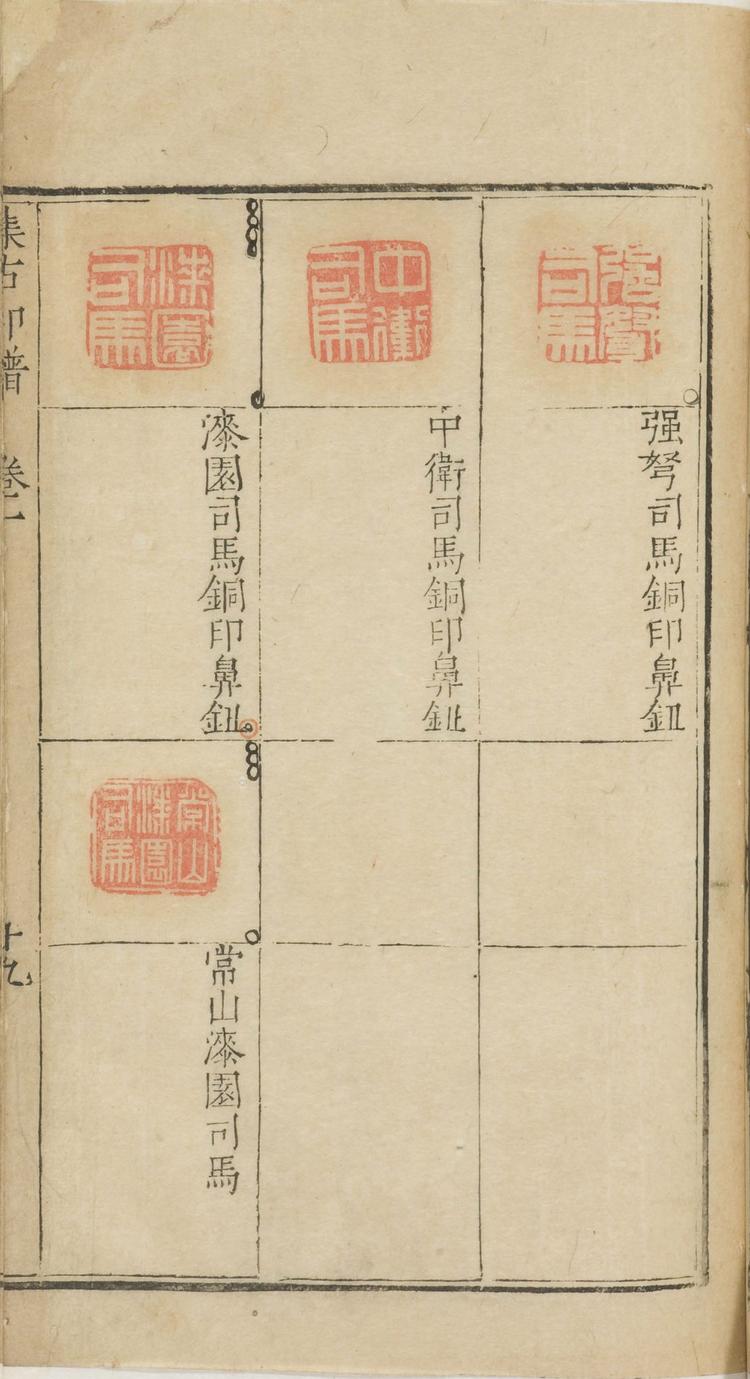 强弩司馬
强弩司馬銅印鼻鈕
中衛司馬
中衛司馬銅印鼻鈕
漆園司馬
漆園司馬銅印鼻鈕
常山漆園司馬
常山漆園司馬
集古印譜 卷二 十九